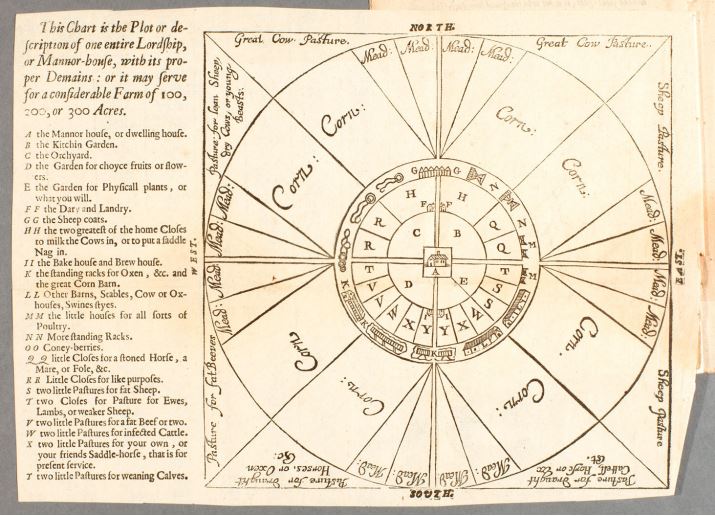 This Chart is the Plot or de-
ſcription of one entire Lordſhip,
or Mannor-houſe, with its pro-
per Demains: or it may ſerve
for a conſiderable Farm of 100,
200, or 300 Acres.
A the Mannor houſe, or dwelling houſe.
B the Kitchin Garden.
C the Orchyard.
D the Garden for choyce fruits or flow-
ers.
E the Garden for Phyſicall plants, or
what you will.
F F the Dary and Landry.
G G the Sheep coats.
H H the two greateſt of the home Cloſes
to milk the Cows in, or to put a ſaddle
Nag in.
I I the Bake houſe and Brew houſe.
K the ſtanding racks for Oxen, &c. and
the great Corn Barn.
L L Other Barns, Stables, Cow or Ox-
houſes, Swines ſtyes.
M M the little houſes for all ſorts of
Poultry.
N N More ſtanding Racks.
O O Coney-berries.
Q Q little Cloſes for a ſtoned Horſe, a
Mare, or Fole, &c.
R R Little Cloſes for like purpoſes.
S two little Paſtures for fat Sheep.
T two Cloſes for Paſture for Ewes,
Lambs, or weaker Sheep.
V two little Paſtures for a fat Beef or two.
W two little Paſtures for infected Cattle.
X two little Paſtures for your own, or
your friends Saddle-horſe, that is for
preſent ſervice.
T two little Paſtures for weaning Calves.
NORTH.
Great Cow Paſture.
Great Cow Paſture.
Mead:
Mead:
Mead:
Mead:
Paſture for
Sheep,
dry Cows, or young
beaſts.
Corn:
Corn:
Sheep Paſture.
Corn:
Corn:
G G
N
N
H H
F F
R Q
C B
R Q
M
M
Mead:
Mead:
Mead:
Mead:
WEST.
A
EAST
T T
D E
V S
V S
W W
X Y Y X
F
K
K
K
Mead:
Mead:
Mead:
Mead:
Corn
Corn:
Corn:
Corn:
Paſture for fat Beeves
Sheep Paſture
Mead:
Mead:
Mead:
Mead:
Paſture for Draught
Horſes, or Oxen
&c:
Paſture for Draught
&c.
SOUTH.